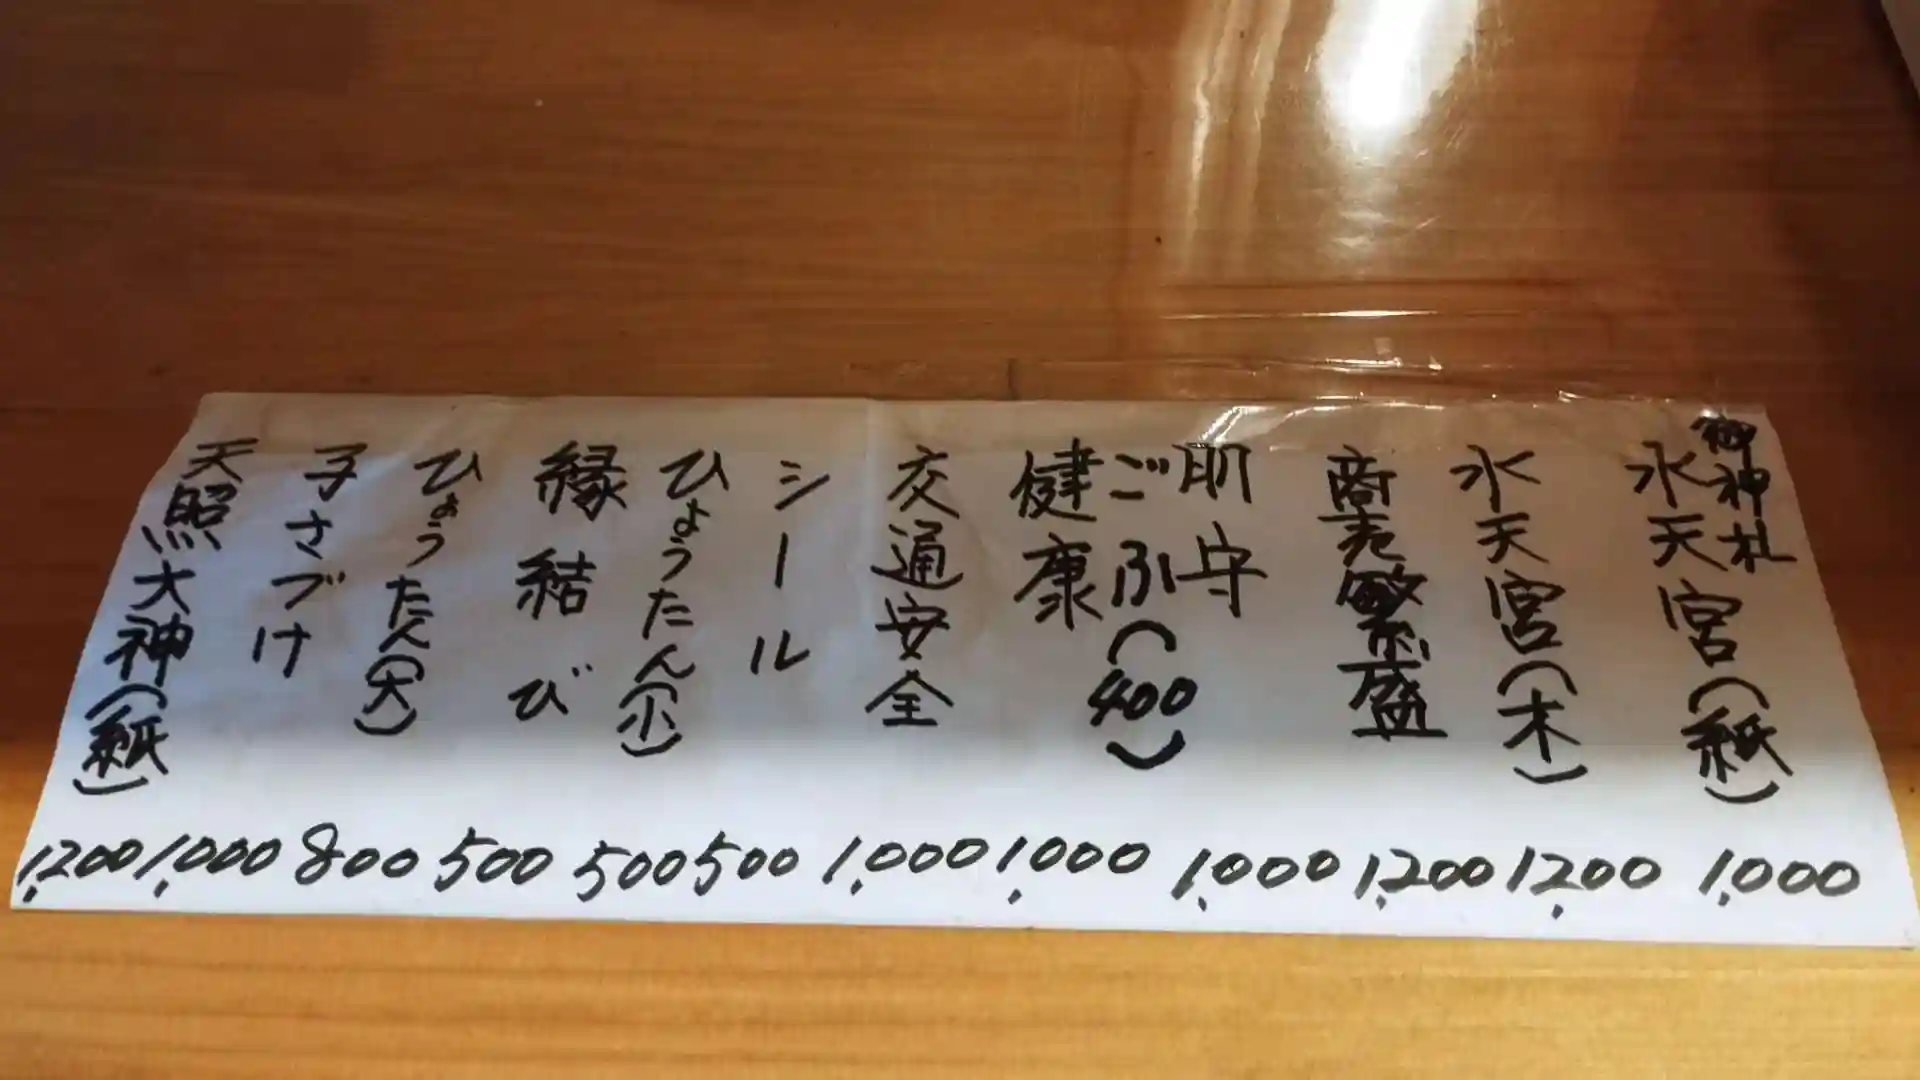 御神札
水天宮(紙)
水天宮(木)
商売繁盛
肌守
ごふ(400)
健康
交通安全
シール
ひょうたん(小)
縁結び
ひょうたん(大)
子さづけ
天照大神(紙)
1,000
1,200
1,200
1,000
1,000
1,000
500
500
500
800
1,000
1,200